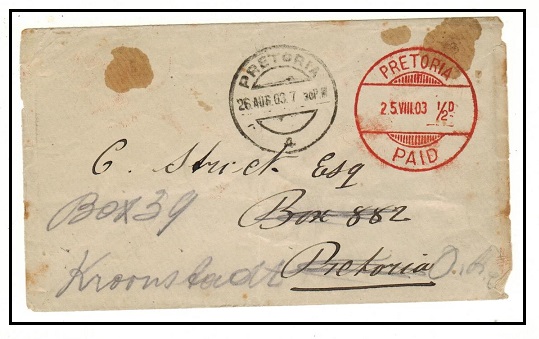 PRETORIA
26 AUG 03. 7 30PM
A
PRETORIA
25.VIII.03 ½D
PAID
C. Strict. Esq
Box 39
Box 882
Kroonstadt
Pretoria